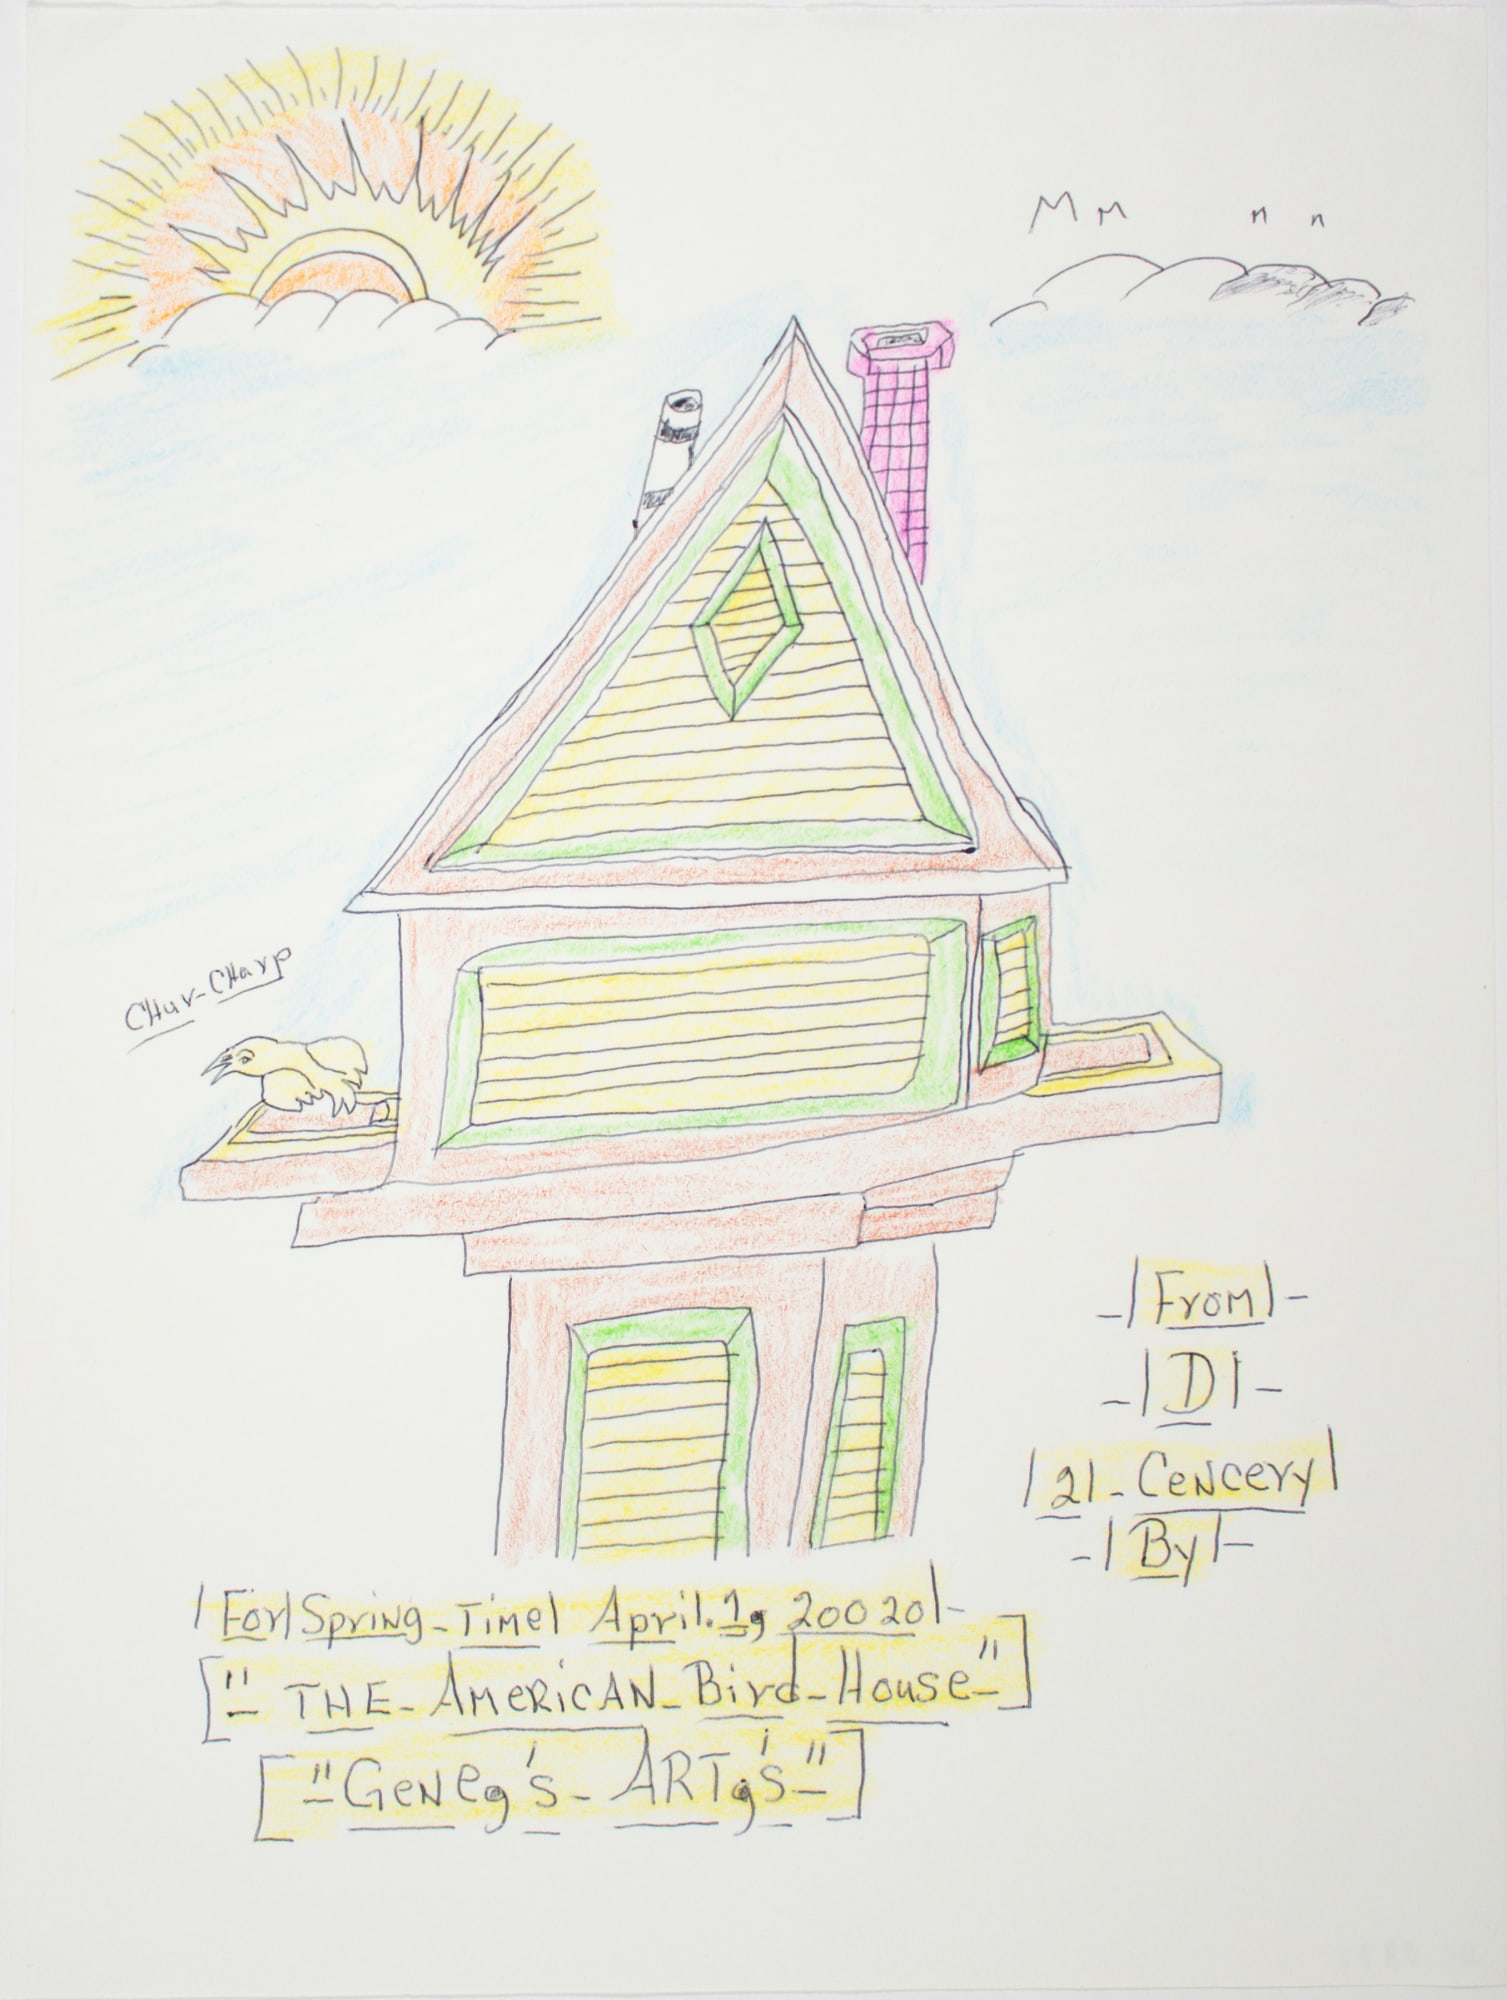 CHur-CHarp
-|From|-
-|D|-
|21-Cencery|
-|By|-
|For|Spring-Time| April.1, 20020|-
["-THE-AMERICAN-Bird-House-"]
["-Gene,'s-ART,'s-"]